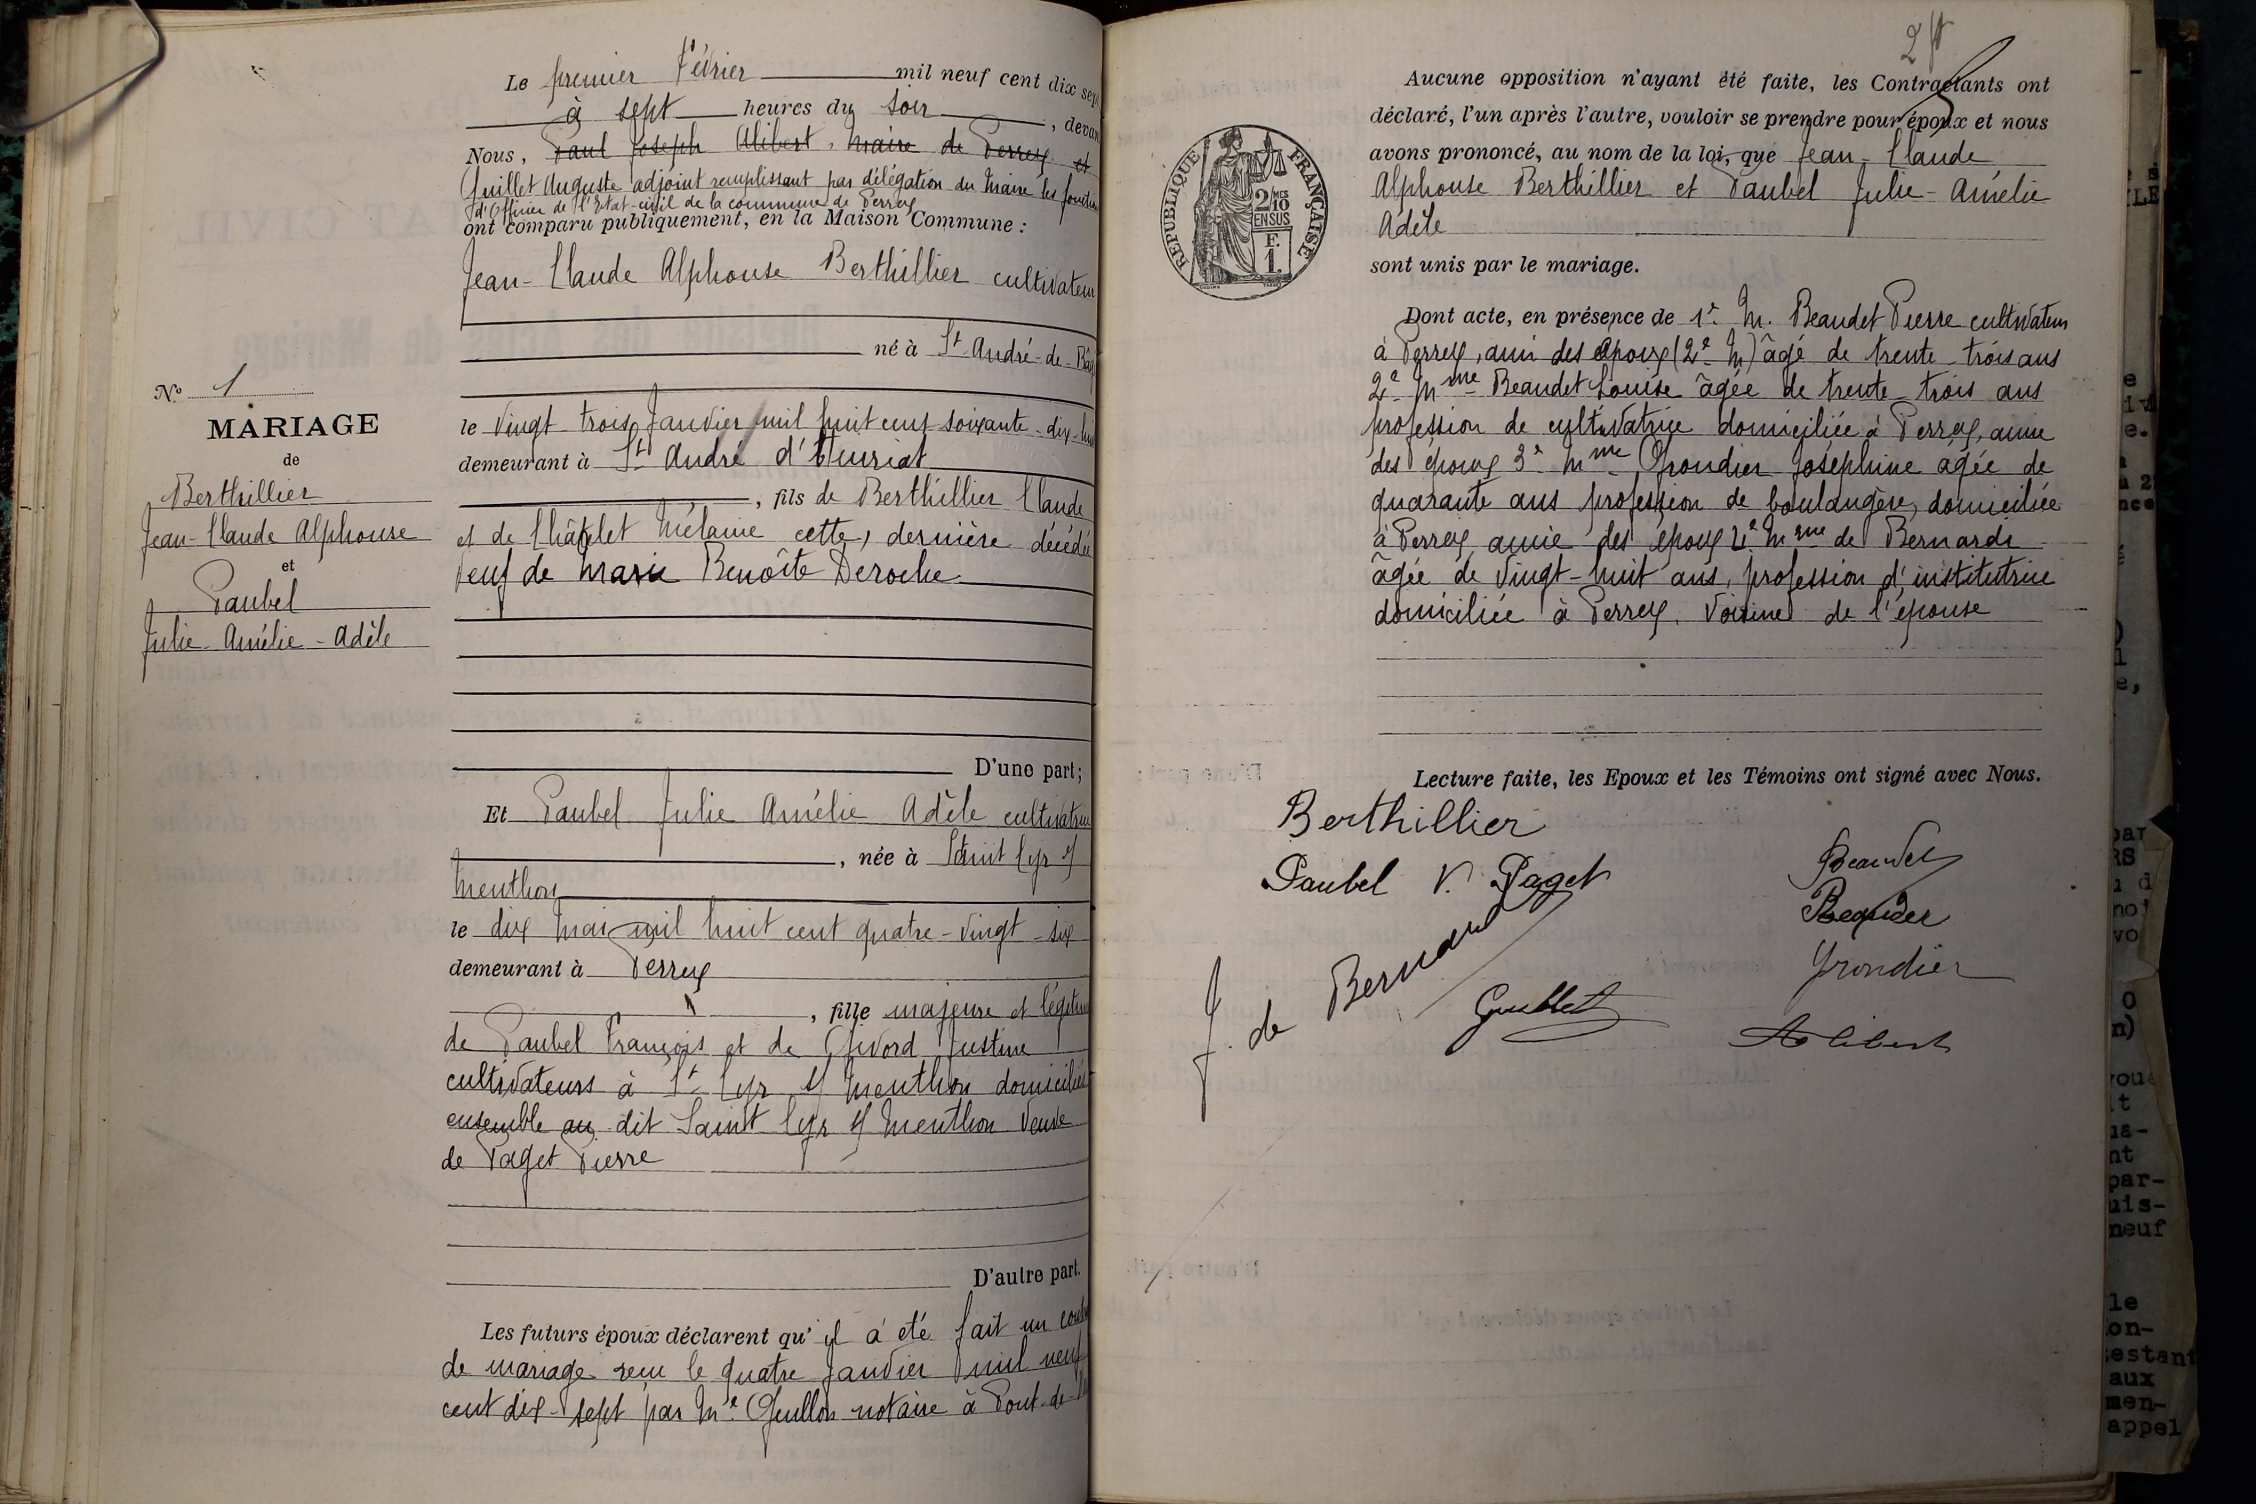 Le premier Février mil neuf cent dix sept
à sept heures du soir, devant
Nous, Paul Joseph Alibert, maire de Perrex et
Guillet Auguste adjoint remplissant par délégation du Maire les fonctions
d'Officier de l'Etat-civil de la commune de Perrex
ont comparu publiquement, en la Maison Commune :
Jean-Claude Alphonse Berthillier cultivateur
né à St André-de-Bâgé
le vingt-trois Janvier mil huit cent soixante-dix-huit
demeurant à St André d'Huiriat
, fils de Berthillier Claude
et de Châtelet Mélanie cette, dernière décédée
veuf de Marie Benoîte Deroche
D'une part;
Et Paubel Julie Amélie Adèle cultivatrice
, née à Saint Cyr s/
Menthon
le dix Mai mil huit cent quatre-vingt-six
demeurant à Perrex
, fille majeure et légitime
de Paubel François et de Givord Justine
cultivateurs à St Cyr s/ Menthon domiciliés
ensemble au dit Saint Cyr s/ Menthon veuve
de Paget Pierre
D'autre part.
Les futurs époux déclarent qu'il a été fait un contrat
de mariage reçu le quatre Janvier mil neuf
cent dix-sept par Me Guillon notaire à Pont-de-
No 1
MARIAGE
de
Berthillier
Jean-Claude Alphonse
et
Paubel
Julie-Amélie-Adèle
2
Aucune opposition n'ayant été faite, les Contractants ont
déclaré, l'un après l'autre, vouloir se prendre pour époux et nous
avons prononcé, au nom de la loi, que Jean-Claude
Alphonse Berthillier et Paubel Julie-Amélie
Adèle
sont unis par le mariage.
Dont acte, en présence de 1° M. Beaudet Pierre cultivateur
à Perrex, ami des époux (2e M) âgé de trente-trois ans
2e Mme Beaudet Louise âgée de trente-trois ans
profession de cultivatrice domiciliée à Perrex, amie
des époux 3e Mme Grondier Joséphine âgée de
quarante ans profession de boulangère, domiciliée
à Perrex amie des époux 4e Mme de Bernardi
âgée de vingt-huit ans, profession d'institutrice
domiciliée à Perrex. Voisine de l'épouse
Lecture faite, les Epoux et les Témoins ont signé avec Nous.
Berthillier
Paubel V. Paget
Beaudet
Beaudet
J. de Bernardi
Grondier
Guillet
Alibert
REPUBLIQUE FRANÇAISE
2/10 MES
EN SUS
F.
1.